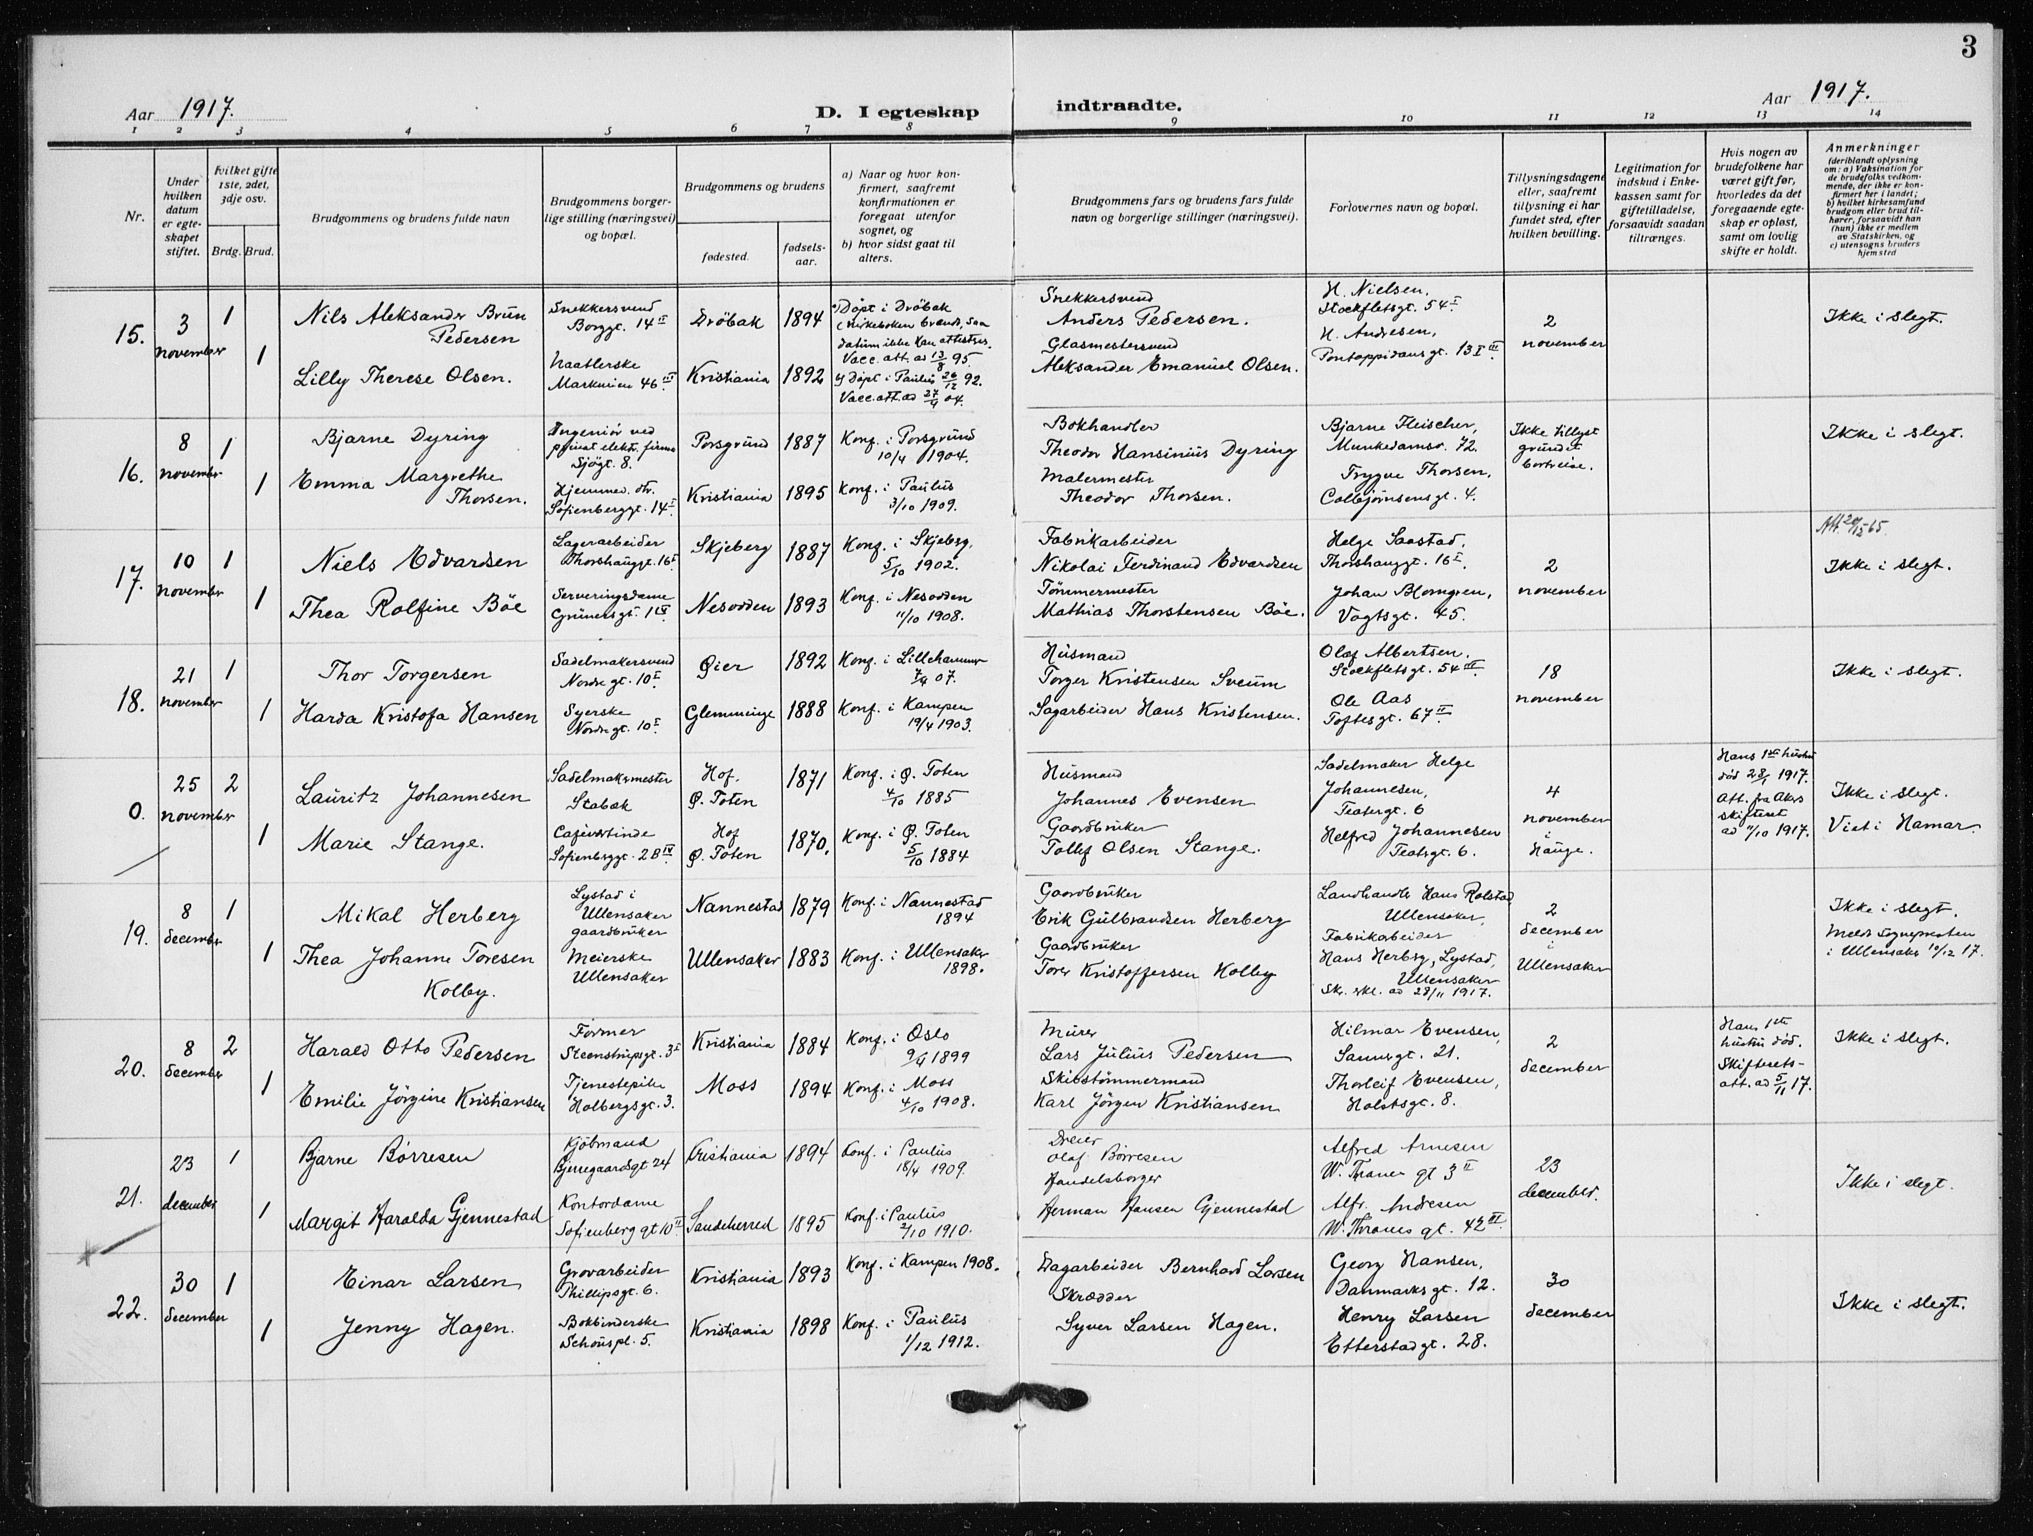 3
Aar 1917.
D. I egteskap indtraadte.
Aar 1917.
1 2 3 4 5 6 7 8 9 10 11 12 13 14
Nr.
Under hvilken datum er egteskapet stiftet.
Hvilket gifte 1ste, 2det, 3dje osv.
Brdg. Brud.
Brudgommens og brudens fulde navn
Brudgommens borgerlige stilling (næringsvei) og bopæl.
Brudgommens og brudens
fødested.
fødselsaar.
a) Naar og hvor konfirmert, saafremt konfirmationen er foregaat utenfor sognet, og
b) hvor sidst gaat til alters.
Brudgommens fars og brudens fars fulde navn og borgerlige stillinger (næringsvei).
Forlovernes navn og bopæl.
Tillysningsdagene eller, saafremt tillysning ei har fundet sted, efter hvilken bevilling.
Legitimation for indskud i Enkekassen samt for giftetilladelse, forsaavidt saadan tiltrænges.
Hvis nogen av brudefolkene har været gift før, hvorledes da det foregaaende egteskap er opløst, samt om lovlig skifte er holdt.
Anmerkninger
(deriblandt oplysning om: a) Vaksination for de brudefolks vedkommende, der ikke er konfirmert her i landet; b) hvilket kirkesamfund brudgom eller brud tilhører, forsaavidt han (hun) ikke er medlem av Statskirken, og c) utensogns bruders hjemsted
15.
3 november
1
1
Nils Aleksander Brun Pedersen
Lilly Therese Olsen.
Snekkersvend
Borggt. 14 II
Naatlerske
Markveien 46 III
Drøbak 1894
Kristiania 1892
Døpt i Drøbak
(Kirkeboken brændt, saa
datum ikke kan attesteres.
Vacc. att. ad 13/8 95.
Døpt i Paulus 26/12 92.
Vacc. att. ad 27/4 04.
Snekkersvend
Anders Pedersen.
Glasmestersvend
Aleksander Emanuel Olsen.
H. Nielsen,
Stockfletsgt. 54 I
H. Andresen,
Pontoppidansgt. 13 I III
2 november
Ikke i slegt.
16.
8 november
1
1
Bjarne Dyring
Emma Margrethe Thorsen.
Ingeniør ved
privat elektr. firma
Sjøgt. 8.
Hjemmev. dtr.
Sofienberggt. 14 I
Porsgrund 1887
Kristiania 1895
Konf. i Porsgrund
10/4 1904.
Konf. i Paulus
3/10 1909.
Bokhandler
Theodor Hansinius Dyring
Malermester
Theodor Thorsen.
Bjarne Fleischer,
Munkedamsv. 72.
Trygve Thorsen,
Colbjørnsensgt. 4.
Ikke tillyst
grundet
bortreise.
Ikke i slegt.
17.
10 november
1
1
Niels Edvardsen
Thea Rolfine Bøe
Lagerarbeider
Thorshauggt. 16 I
Serveringsdame
Grünersgt. 1 IV
Skjeberg 1887
Nesodden 1893
Konf. i Skjebrg.
5/10 1902.
Konf. i Nesodden
11/10 1908.
Fabrikarbeider
Nikolai Ferdinand Edvardsen
Tømmermester
Mathias Thorstensen Bøe.
Helge Saastad,
Thorshauggt. 16 I.
Johan Blomgren,
Vogtsgt. 45.
2 november
Ikke i slegt.
18.
21 november
1
1
Thor Torgersen
Harda Kristofa Hansen
Sadelmakersvend
Nordregt. 10 I
Syerske
Nordregt. 10 I
Øier 1892
Glemminge 1888
Konf. i Lillehammer
7/4 07.
Konf. i Kampen
19/4 1903.
Husmand
Torger Kristensen Sveum
Sagarbeider Hans Kristensen.
Olaf Albertsen.
Stockfletsgt. 54 III
Ole Aas
Toftesgt. 67 II
18 november
Ikke i slegt.
0.
25 november
2
1
Lauritz Johannesen
Marie Stange.
Sadelmakermester
Stabæk
Caféværtinde
Sofienbrggt. 2 B IV
Hof, Ø. Toten 1871
Hof Ø. Toten 1870.
Konf. i Ø. Toten
4/10 1885
Konf. i Ø. Toten
5/10 1884
Husmand
Johannes Evensen
Gaardbruker
Tollef Olsen Stange.
Sadelmaker Helge
Johannesen,
Teatergt. 6
Helfred Johannesen
Teatergt. 6.
4 november i Hauge.
Hans 1ste hustru
død 28/1 1917.
Att. fra Akers
skifteret
ad 11/10 1917.
Ikke i slegt.
Viet i Hamar.
19.
8 december
1
1
Mikal Herberg
Thea Johanne Toresen Kolby.
Lystad i
Ullensaker
gaardbruker
Meierske
Ullensaker
Nannestad 1879
Ullensaker 1883
Konf. i Nannestad
1894
Konf. i Ullensaker
1898.
Gaardbruker
Erik Gulbrandsen Herberg
Gaardbruker
Torer Kristoffersen Kolby
Landhandler Hans Rolstad
Ullensaker,
Fabrikarbeider
Hans Herbrg, Lystad,
Ullensaker
Skr. erkl. ad 28/11 1917.
2 december i Ullensaker
Ikke i slegt.
Meldt sognepresten
i Ullensaker 10/12 17.
20.
8 december
2
1
Harald Otto Pedersen
Emilie Jørgine Kristiansen
Former
Steenstrupsgt. 3 I
Tjenestepike
Holbergsgt. 3.
Kristiania 1884
Moss 1894
Konf. i Oslo
9/4 1899
Konf. i Moss
4/10 1908.
Murer
Lars Julius Pedersen
Skibstømmermand
Karl Jørgen Kristiansen
Hilmar Evensen,
Sannergt. 21.
Thorleif Evensen,
Holstsgt. 8.
2 december
Hans 1ste
hustru død.
Skifterets-
att. ad 5/11 17.
Ikke i slegt.
21.
23 december
1
1
Bjarne Børresen
Margit Haralda Gjennestad
Kjøbmand
Bjerregaardsgt 24
Kontordame
Sofienberg gt 10 II
Kristiania 1894
Sandeherred 1895
Konf. i Paulus
18/4 1909.
Konf. i Paulus
2/10 1910.
Dreier
Olaf Børresen
Handelsborger
Herman Hansen Gjennestad
Alfred Arnesen
W. Thranes gt 3 II
Alfr. Andresen
W. Thranes gt. 42 III
23 december.
Ikke i slegt.
22.
30 december
1
1
Einar Larsen
Jenny Hagen.
Grovarbeider
Phillipsgt. 6.
Bokbinderske
Schouspl. 5.
Kristiania 1893
Kristiania 1898
Konf. i Kampen 1908.
Konf. i Paulus
1/12 1912.
Dagarbeider Bernhard Larsen
Skrædder
Syver Larsen Hagen.
Georg Hansen,
Danmarksgt. 12.
Henry Larsen
Etterstadgt. 28.
30 december
Ikke i slegt.